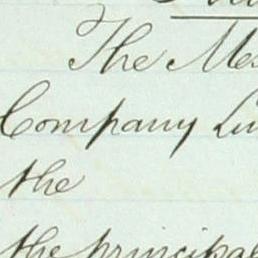 The
Company
the
the principal